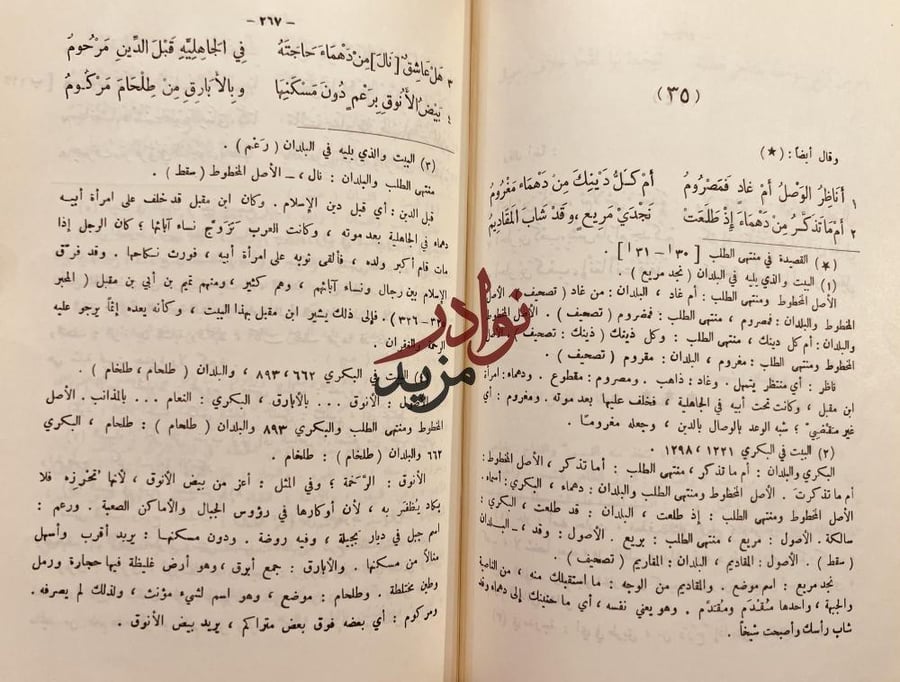 (٣٥)
وقال أيضاً : (★)
١ أَنَاظِرُ الوَصْلُ أمْ غادٍ فَمَصْرُومُ أمْ كلُّ دَيْنِكَ مِنْ دَهْمَاءَ مَغْرُومُ
٢ أمْ مَا تَذَكَّرُ مِنْ دَهْمَاءَ إذْ طَلَعَتْ نَجْدَيْ مَرِيعٍ ، وقَدْ شَابَ المَقَادِيمُ
(★) القصيدة في منتهى الطلب [ ٣٠ أ – ٣١ أ ] .
(١) البيت والذي يليه في البلدان ( نجد مريع )
الأصل المخطوط ومنتهى الطلب : أم غاد ، البلدان : من غاد ( تصحيف ) . الأصل
المخطوط والبلدان : فمصروم ، منتهى الطلب : فمضروم ( تصحيف ) . الأصل المخطوط
والبلدان : أم كل دينك ، منتهى الطلب : وكل ذينك ( ذينك : تصحيف ) . الأصل
المخطوط ومنتهى الطلب : مغروم ، البلدان : مقروم ( تصحيف ) .
ناظر : أي منتظر يتمهل . وغاد : ذاهب . ومصروم : مقطوع . ودهماء : امرأة
ابن مقبل ، وكانت تحت أبيه في الجاهلية ، فخلف عليها بعد موته . ومغروم : أي
غير متقضيٍّ ؛ شبه الوعد بالوصال بالدين ، وجعله مغروماً .
(٢) البيت في البكري ١٢٢١ ، ١٢٩٨ .
البكري والبلدان : أم ما تذكر ، منتهى الطلب : أما تذكر ، الأصل المخطوط :
أم ما تذكرت . الأصل المخطوط ومنتهى الطلب والبلدان : دهماء ، البكري : أسماء .
الأصل المخطوط ومنتهى الطلب : إذ طلعت ، البلدان : قد طلعت ، البكري :
سالكة . الأصول : مريع ، منتهى الطلب : بريع . الأصول : وقد ، – البلدان
( سقط ) . الأصول : المقاديم ، البلدان : المقاريم ( تصحيف ) .
نجد مريع : اسم موضع . والمقاديم من الوجه : ما استقبلك منه ، من الناصية
والجبهة ، واحدها مُقْدَم ومُقَدَّم . وهو يعني نفسه ، أي ما حنينك إلى دهماء وقد
شاب رأسك وأصبحت شيخاً .
– ٢٦٧ –
٣ هَلْ عَاشِقٌ [ نَالَ ] مِنْ دَهْمَاءَ حَاجَتَهُ في الجَاهِلِيَّةِ قَبْلَ الدِّينِ مَرْحُومُ
٤ بَيْضُ الأَنُوقِ بِرَعْمٍ دُونَ مَسْكَنِهَا وبِالأَبَارِقِ مِنْ طِلْحَامَ مَرْكُومُ
(٣) البيت والذي يليه في البلدان ( رَعْم ) .
منتهى الطلب والبلدان : نال ، – الأصل المخطوط ( سقط ) .
قبل الدين : أي قبل دين الإسلام . وكان ابن مقبل قد خلف على امرأة أبيه
دهماء في الجاهلية بعد موته ، وكانت العرب تتزوج نساء آبائها ، كان الرجل إذا
مات قام أكبر ولده ، فألقى ثوبه على امرأة أبيه ، فورث نكاحها . وقد فرّق
الإسلام بين رجال ونساء آبائهم ، وهم كثير ، ومنهم تميم بن أبي بن مقبل ( المحبر
٣٢٦ ) . فإلى ذلك يشير ابن مقبل بهذا البيت ، وكأنه يعده إثماً يرجو عليه
الرحمة والغفران .
البيت في البكري ٦٦٢ ، ٨٩٣ ، والبلدان ( طلحام ، طلخام ) .
الأصل : الأنوق ... بالأبارق ، البكري : النعام ... بالمذانب . الأصل
المخطوط ومنتهى الطلب والبكري ٨٩٣ والبلدان ( طلحام ) : طلحام ، البكري
٦٦٢ والبلدان ( طلخام ) : طلخام .
الأنوق : الرَّخَمة ؛ وفي المثل : أعز من بيض الأنوق ، لأنها تحترزه فلا
يكاد يُظفر به ، لأن أوكارها في رؤوس الجبال والأماكن الصعبة . ورعم :
اسم جبل في ديار بجيلة ، وفيه روضة . ودون مسكنها : يريد أقرب وأسهل
منالاً من مسكنها . والأبارق : جمع أبرق ، وهو أرض غليظة فيها حجارة ورمل
وطين مختلطة . وطلحام : موضع ، وهو اسم لشيء مؤنث ، ولذلك لم يصرفه .
ومركوم : أي بعضه فوق بعض متراكم ، يريد بيض الأنوق .
نوادر
مزيد